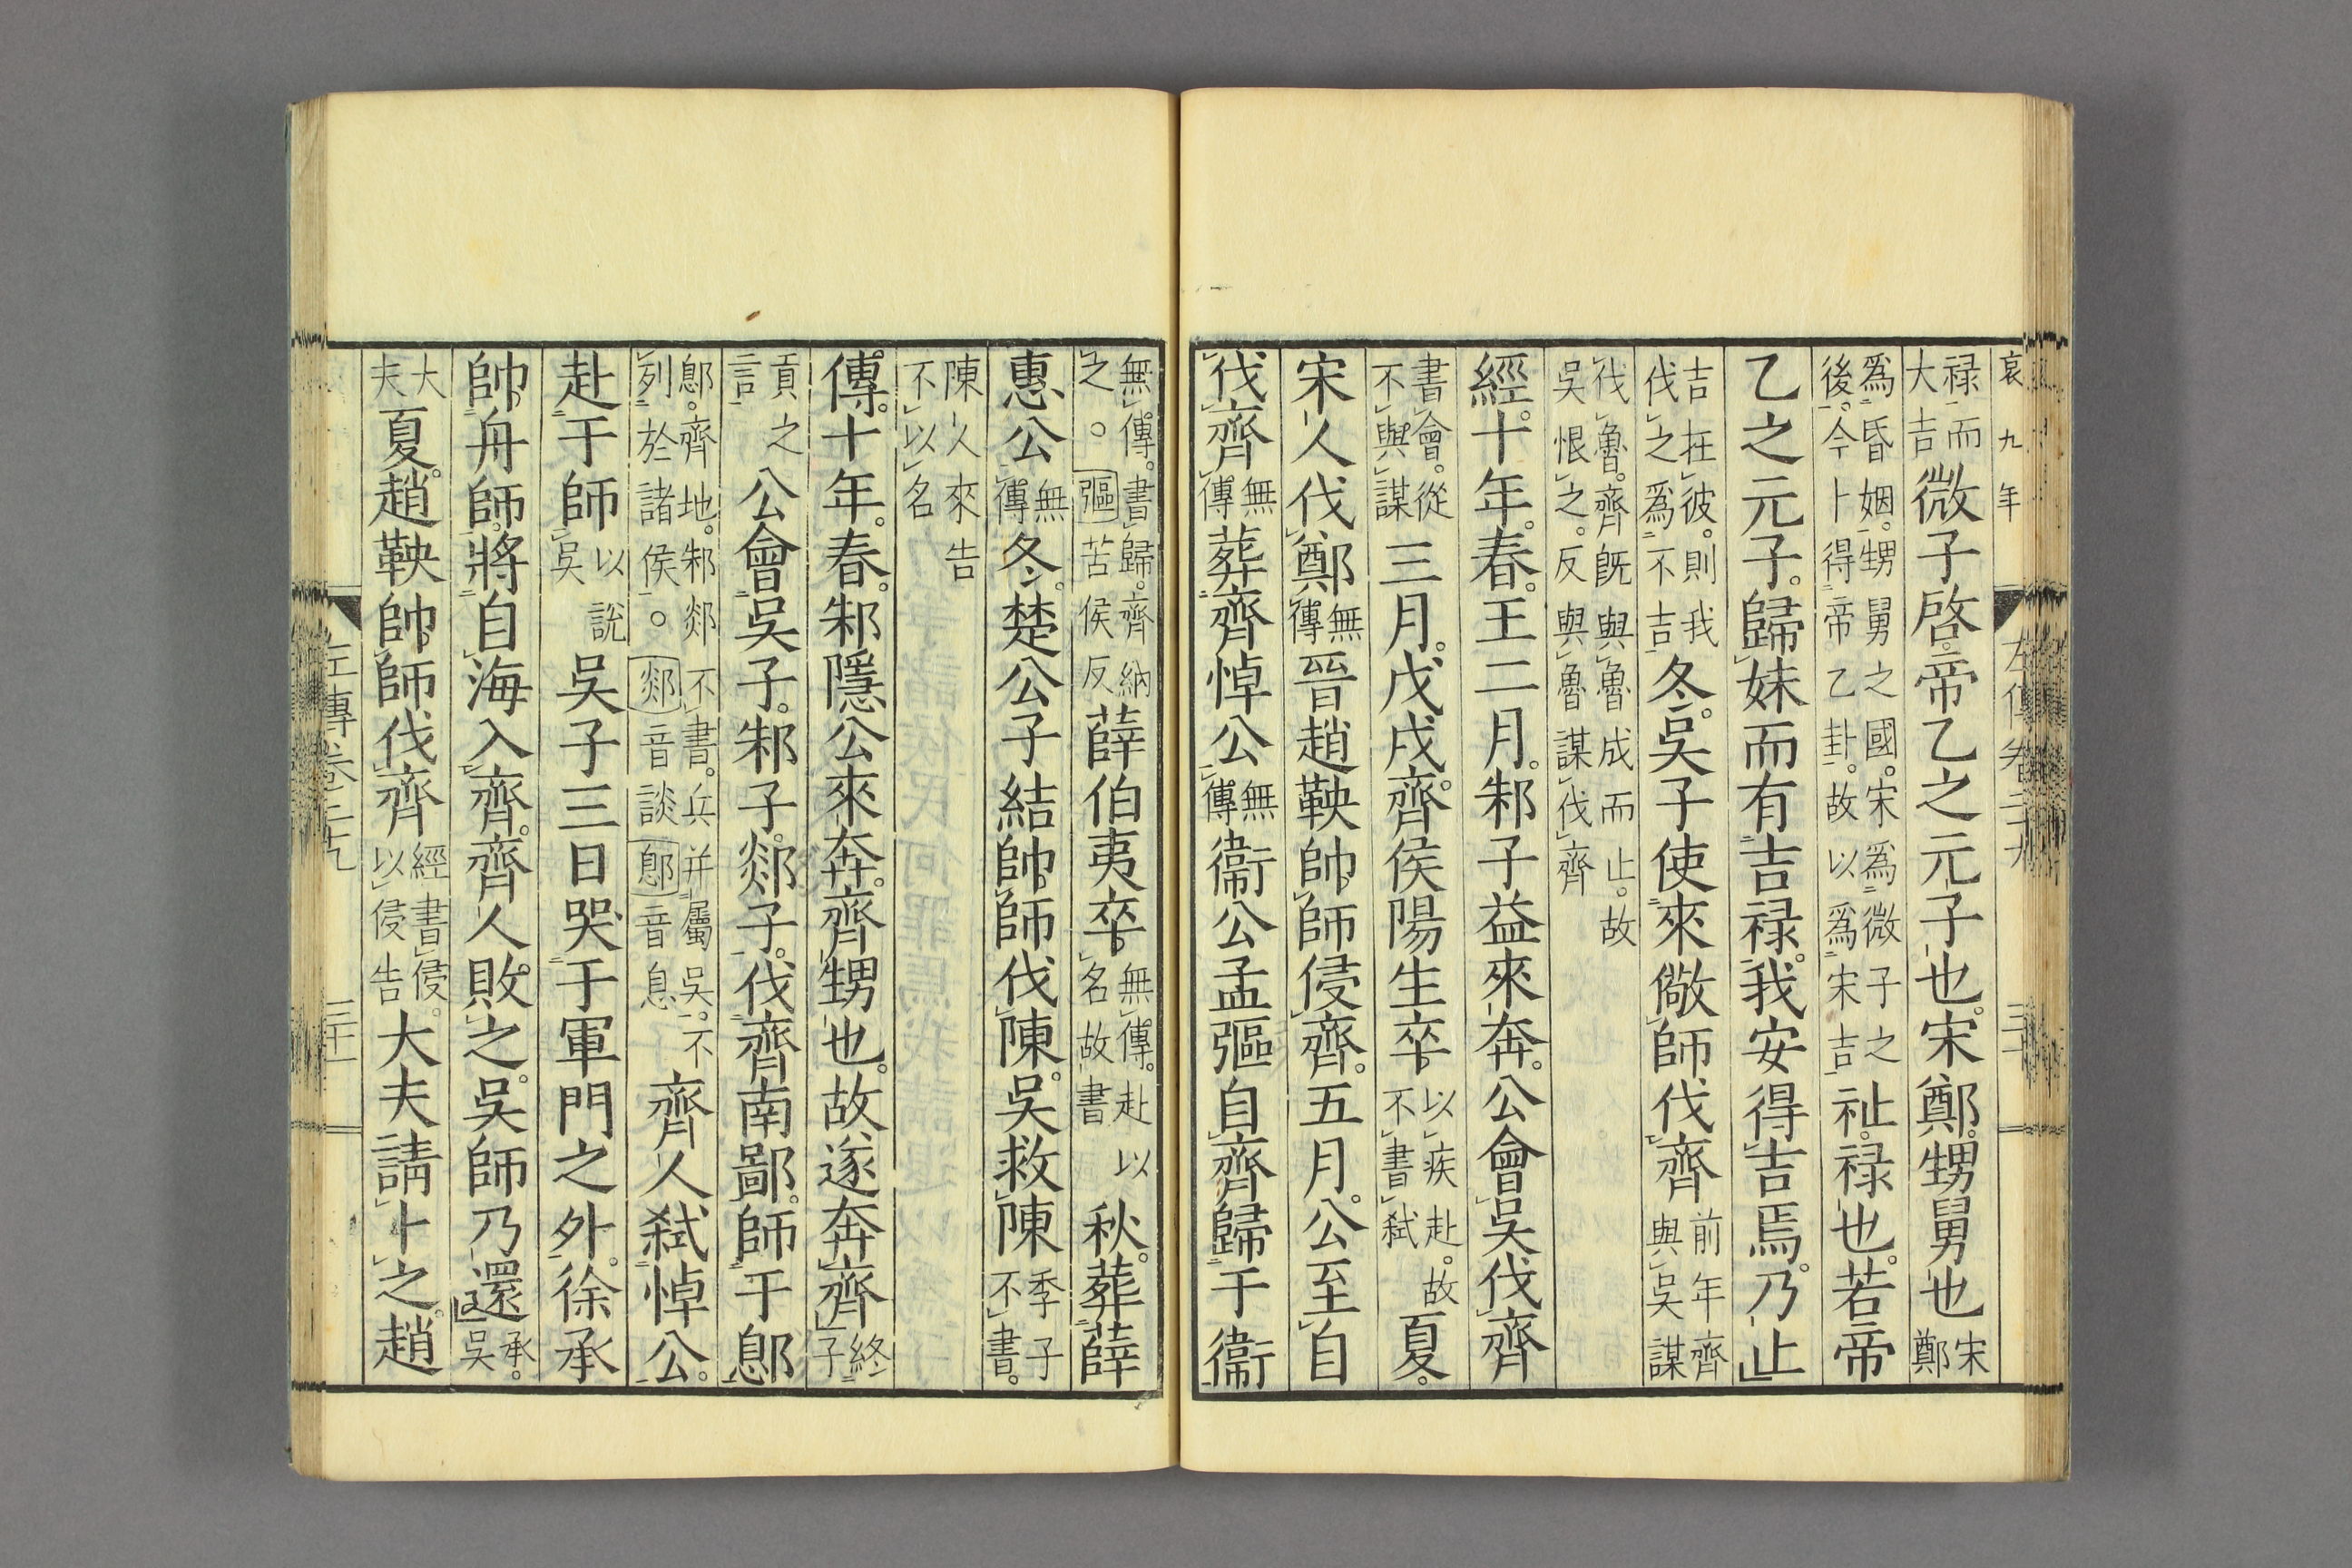 哀九年
左傳卷二十九
祿而大吉微子啓帝乙之元子也宋鄭甥舅也宋鄭
爲昏姻甥舅之國宋爲微子之後今卜得帝乙卦故以爲宋吉祉祿也若帝
乙之元子歸妹而有吉祿我安得吉焉乃止
吉在彼則我伐之爲不吉冬吳子使來儆師伐齊前年齊與吳謀
伐魯齊既與魯成而止故吳恨之反與魯謀伐齊
經十年春王二月邾子益來奔公會吳伐齊
書會從不與謀三月戊戌齊侯陽生卒以疾赴故不書弑夏
宋人伐鄭無傳晉趙鞅帥師侵齊五月公至自
伐齊無傳葬齊悼公無傳衞公孟彄自齊歸于衞
無傳書歸齊納之彄苦侯反薛伯夷卒無傳赴以名故書秋葬薛
惠公無傳冬楚公子結帥師伐陳吳救陳季子不書
陳人來告不以名
傳十年春邾隱公來奔齊甥也故遂奔齊終子
貢之言公會吳子邾子郯子伐齊南鄙師于鄎
鄎齊地邾郯不書兵并屬吳不列於諸侯郯音談鄎音息齊人弑悼公
赴于師以說吳吳子三日哭于軍門之外徐承
帥舟師將自海入齊齊人敗之吳師乃還承吳
大夫夏趙鞅帥師伐齊經書侵以侵告大夫請卜之趙
左傳卷二十九
三十一